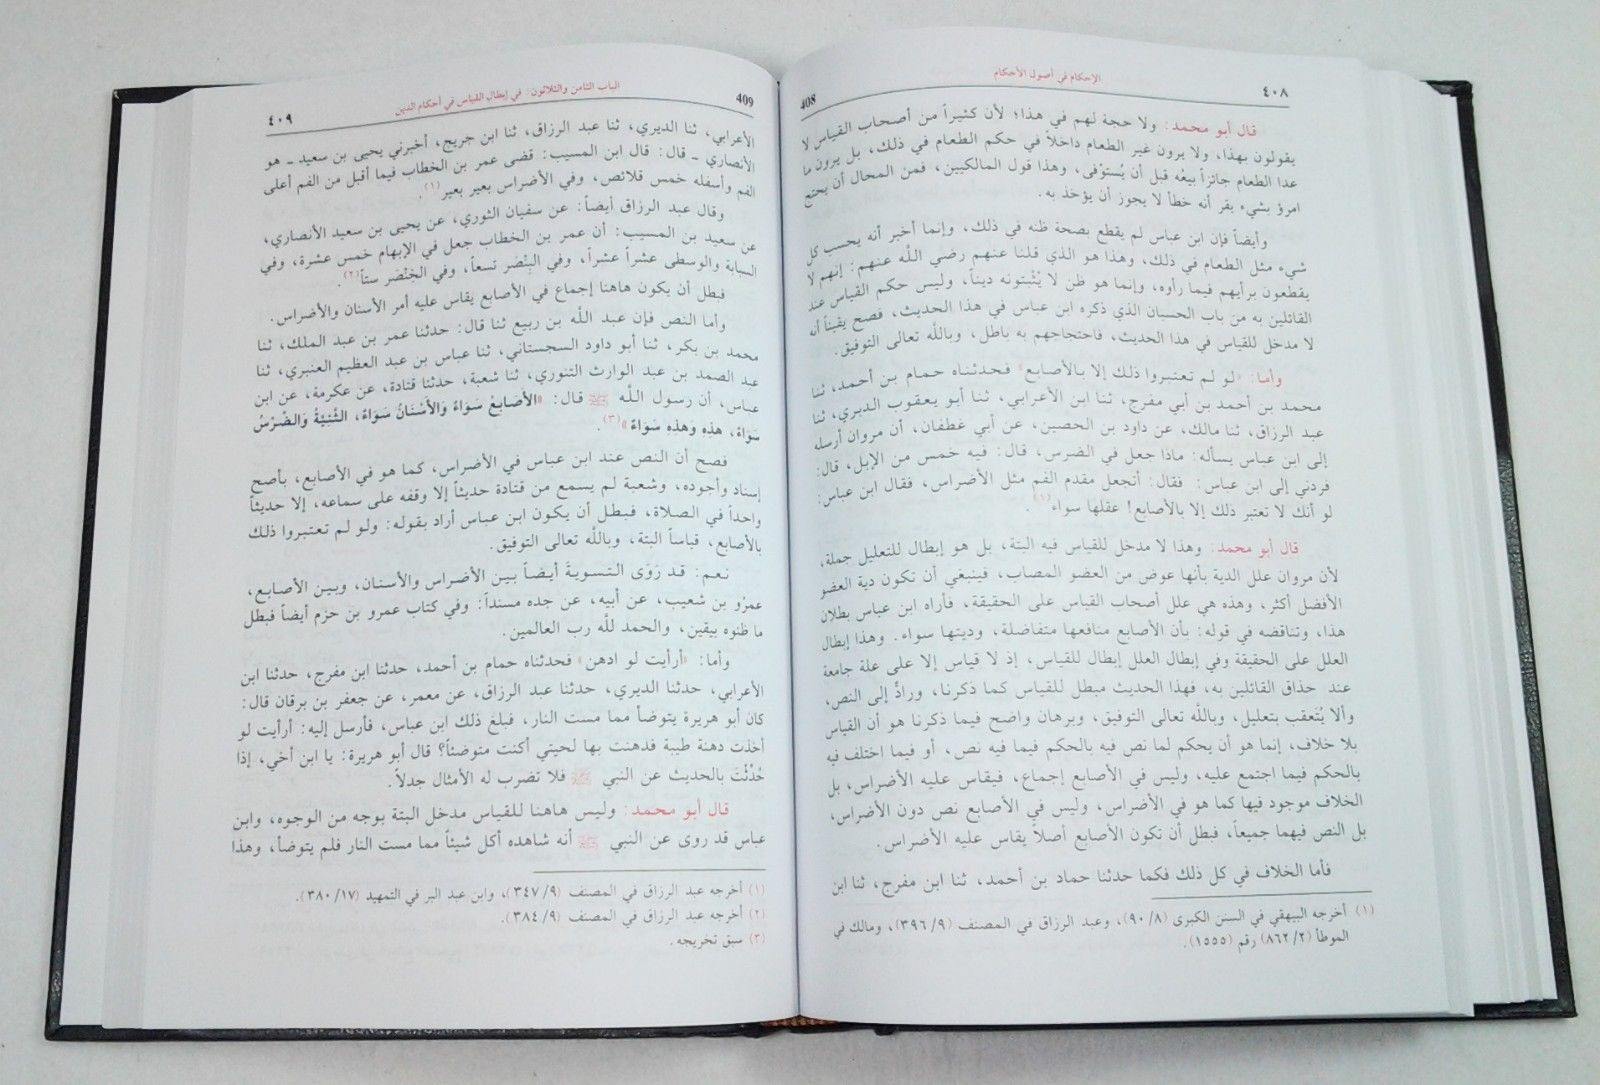 ٤٠٨
الإحكام في أصول الأحكام
408
قال أبو محمد: ولا حجة لهم في هذا؛ لأن كثيراً من أصحاب القياس لا
يقولون بهذا، ولا يرون غير الطعام داخلاً في حكم الطعام في ذلك، بل يرون ما
عدا الطعام جائزاً بيعُه قبل أن يُستوْفى، وهذا قول المالكيين، فمن المحال أن يحتج
امرؤ بشيء يقر أنه خطأ لا يجوز أن يؤخذ به.
وأيضاً فإن ابن عباس لم يقطع بصحة ظنه في ذلك، وإنما أخبر أنه يحسب كل
شيء مثل الطعام في ذلك، وهذا هو الذي قلنا عنهم رضي اللّه عنهم: إنهم لا
يقطعون برأيهم فيما رأوه، وإنما هو ظن لا يُثْبتونه ديناً، وليس حكم القياس عند
القائلين به من باب الحسبان الذي ذكره ابن عباس في هذا الحديث، فصح يقيناً أنه
لا مدخل للقياس في هذا الحديث، فاحتجاجهم به باطل، وباللّه تعالى التوفيق.
وأما: «لو لم تعتبروا ذلك إلا بالأصابع» فحدثناه حمام بن أحمد، ثنا
محمد بن أحمد بن أبي مفرج، ثنا ابن الأعرابي، ثنا أبو يعقوب الدبري، ثنا
عبد الرزاق، ثنا مالك، عن داود بن الحصين، عن أبي غطفان، أن مروان أرسله
إلى ابن عباس يسأله: ماذا جعل في الضرس، قال: فيه خمس من الإبل، قال:
فردني إلى ابن عباس: فقال: أتجعل مقدم الفم مثل الأضراس، فقال ابن عباس:
لو أنك لا تعتبر ذلك إلا بالأصابع! عقلها سواء (١).
قال أبو محمد: وهذا لا مدخل للقياس فيه البتة، بل هو إبطال للتعليل جملة،
لأن مروان علل الدية بأنها عوض من العضو المصاب، فينبغي أن تكون دية العضو
الأفضل أكثر، وهذه هي علل أصحاب القياس على الحقيقة، فأراه ابن عباس بطلان
هذا، وتناقضه في قوله: بأن الأصابع منافعها متفاضلة، وديتها سواء. وهذا إبطال
العلل على الحقيقة وفي إبطال العلل إبطال للقياس، إذ لا قياس إلا على علة جامعة
عند حذاق القائلين به، فهذا الحديث مبطل للقياس كما ذكرنا، ورادٌّ إلى النص،
وألا يُتعقب بتعليل، وباللّه تعالى التوفيق، وبرهان واضح فيما ذكرنا هو أن القياس
بلا خلاف، إنما هو أن يحكم لما نص فيه بالحكم فيما فيه نص، أو فيما اختلف فيه
بالحكم فيما اجتمع عليه، وليس في الأصابع إجماع، فيقاس عليه الأضراس، بل
الخلاف موجود فيها كما هو في الأضراس، وليس في الأصابع نص دون الأضراس،
بل النص فيهما جميعاً، فبطل أن تكون الأصابع أصلاً يقاس عليه الأضراس.
فأما الخلاف في كل ذلك فكما حدثنا حماد بن أحمد، ثنا ابن مفرج، ثنا ابن
(١) أخرجه البيهقي في السنن الكبرى (٩٠/٨)، وعبد الرزاق في المصنف (٣٩٦/٩)، ومالك في
الموطأ (٨٦٢/٢) رقم (١٥٥٥).
409
الباب الثامن والثلاثون: في إبطال القياس في أحكام الدين
٤٠٩
الأعرابي، ثنا الديري، ثنا عبد الرزاق، ثنا ابن جريج، أخبرني يحيى بن سعيد ـ هو
الأنصاري ـ قال: قال ابن المسيب: قضى عمر بن الخطاب فيما أقبل من الفم أعلى
الفم وأسفله خمس قلائص، وفي الأضراس بعير بعير (١).
وقال عبد الرزاق أيضاً: عن سفيان الثوري، عن يحيى بن سعيد الأنصاري،
عن سعيد بن المسيب: أن عمر بن الخطاب جعل في الإبهام خمس عشرة، وفي
السبابة والوسطى عشراً عشراً، وفي البِنْصَر تسعاً، وفي الخِنْصَر ستاً(٢).
فبطل أن يكون هاهنا إجماع في الأصابع يقاس عليه أمر الأسنان والأضراس.
وأما النص فإن عبد اللّه بن ربيع ثنا قال: حدثنا عمر بن عبد الملك، ثنا
محمد بن بكر، ثنا أبو داود السجستاني، ثنا عباس بن عبد العظيم العنبري، ثنا
عبد الصمد بن عبد الوارث التنوري، ثنا شعبة، حدثنا قتادة، عن عكرمة، عن ابن
عباس، أن رسول اللّه ﷺ قال: «الأَصابِعُ سَوَاءٌ وَالأَسْنَانُ سَوَاءٌ، الثَّنِيَّةُ وَالضِّرْسُ
سَوَاءٌ، هذِهِ وَهذِهِ سَوَاءٌ»(٣).
فصح أن النص عند ابن عباس في الأضراس، كما هو في الأصابع، بأصح
إسناد وأجوده، وشعبة لم يسمع من قتادة حديثاً إلا وقفه على سماعه، إلا حديثاً
واحداً في الصلاة، فبطل أن يكون ابن عباس أراد بقوله: ولو لم تعتبروا ذلك
بالأصابع، قياساً البتة، وباللّه تعالى التوفيق.
نعم: قد رَوَى التسويةَ أيضاً بين الأضراس والأسنان، وبين الأصابع،
عمرُو بن شعيب، عن أبيه، عن جده مسنداً: وفي كتاب عمرو بن حزم أيضاً فبطل
ما ظنوه بيقين، والحمد للَّه رب العالمين.
وأما: «أرأيت لو ادهن» فحدثناه حمام بن أحمد، حدثنا ابن مفرج، حدثنا ابن
الأعرابي، حدثنا الديري، حدثنا عبد الرزاق، عن معمر، عن جعفر بن برقان قال:
كان أبو هريرة يتوضأ مما مست النار، فبلغ ذلك ابن عباس، فأرسل إليه: أرأيت لو
أخذت دهنة طيبة فدهنت بها لحيتي أكنت متوضئاً؟ قال أبو هريرة: يا ابن أخي، إذا
حُدِّثْتَ بالحديث عن النبي ﷺ فلا تضرب له الأمثال جدلاً.
قال أبو محمد: وليس هاهنا للقياس مدخل البتة بوجه من الوجوه، وابن
عباس قد روى عن النبي ﷺ أنه شاهده أكل شيئاً مما مست النار فلم يتوضأ، وهذا
(١) أخرجه عبد الرزاق في المصنف (٣٤٧/٩)، وابن عبد البر في التمهيد (٣٨٠/١٧).
(٢) أخرجه عبد الرزاق في المصنف (٣٨٤/٩).
(٣) سبق تخريجه.